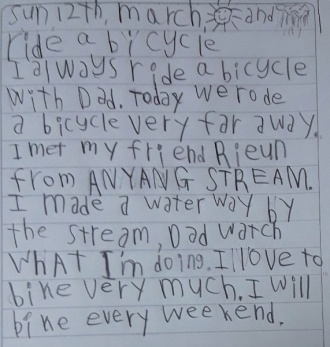 sun, 12th, march, and
ride a bicycle
I always ride a bicycle
with Dad. Today we rode
a bicycle very far away.
I met my friend Rieun
from ANYANG STREAM.
I made a water way by
the stream, Dad watch
What I'm doing. I love to
bike very much. I will
bike every weekend.